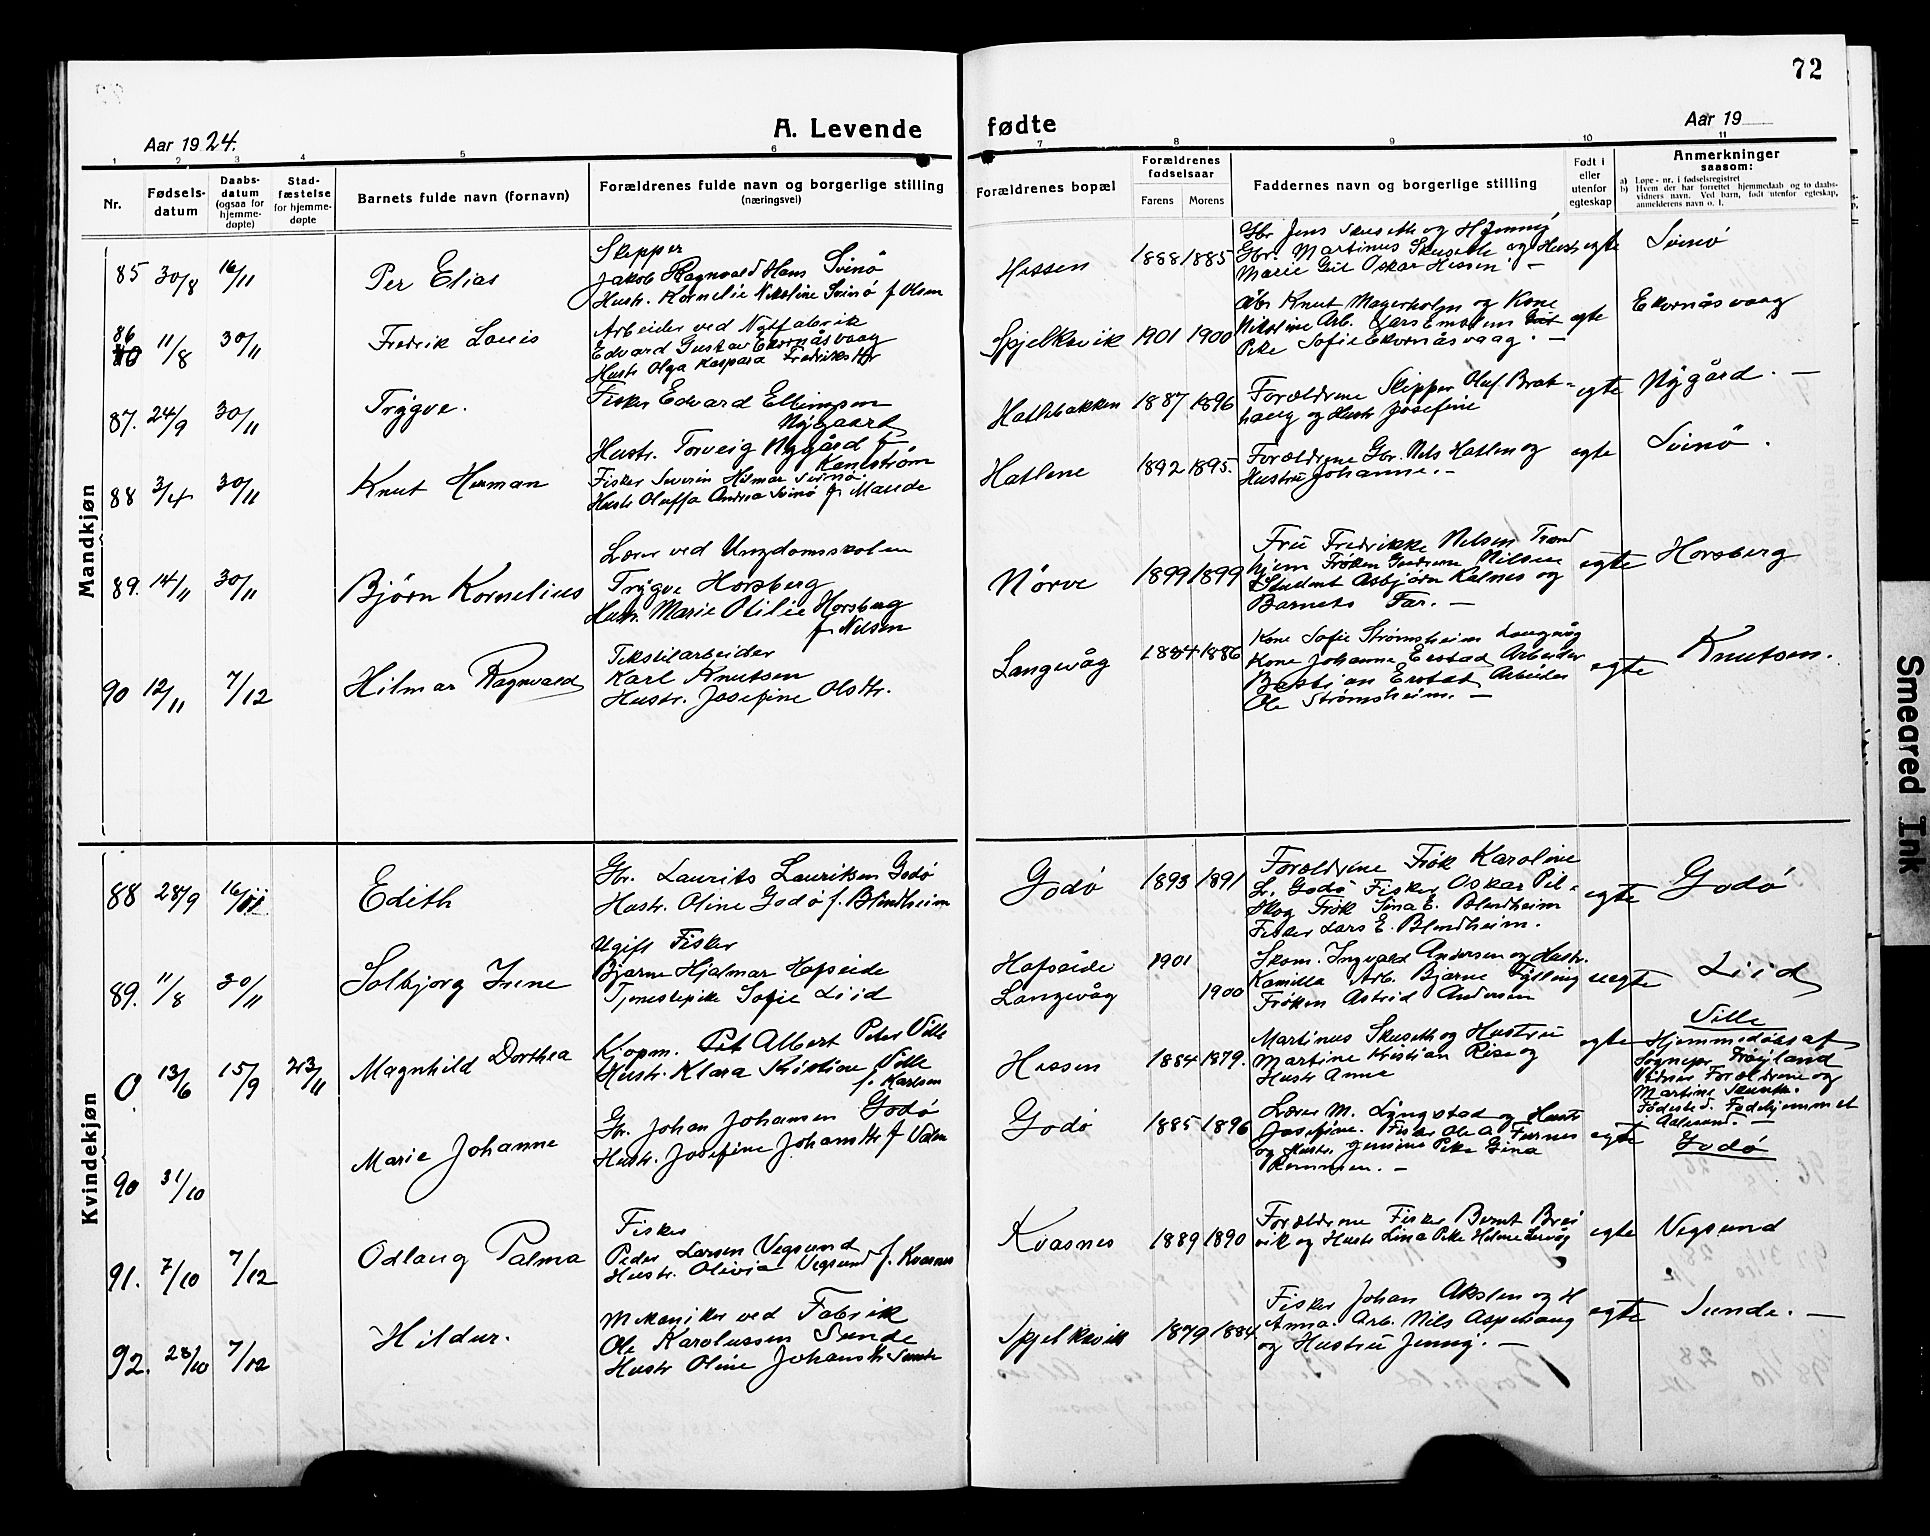 72
Aar 1924.
A. Levende
fødte
Aar 19
1 2 3 4 5 6 7 8 9 10 11
Nr.
Fødsels-
datum
Daabs-
datum
(ogsaa for
hjemme-
døpte)
Stad-
fæstelse
for hjemme-
døpte
Barnets fulde navn (fornavn)
Forældrenes fulde navn og borgerlige stilling
(næringsvei)
Forældrenes bopæl
Forældrenes
fødselsaar
Farens Morens
Faddernes navn og borgerlige stilling
Født i
eller
utenfor
egteskap
Anmerkninger
saasom:
a) Løpe-nr. i fødselsregistret
b) Hvem der har forrettet hjemmedaab og to daabs-
vidners navn. Ved barn, født utenfor egteskap,
anmelderens navn o. l.
Mandkjøn
85 30/8 16/11 Per Elias
Skipper
Jakob Ragnvald Hans Svinø
Hustr. Kornelie Nikoline Svinø f Olsen
Hessen 1888 1885
Gbr Jens Skuseth og H Jenny
Gbr. Martinus Skuseth og Hustr
Marie Git Oskar Hessen —
egte Svinø
86 11/8 30/11 Fredrik Louis
Arbeider ved Notfabrik
Edvard Gustav Ekornåsvaag
Hustr Olga Kaspara Fredriks dtr
Spjelkavik 1901 1900
Gbr Knut Magerholm og Kone
Nikoline Arb. Lars Emblem
Pike Sofie Ekornåsvaag. —
egte Ekornåsvaag
87. 24/9 30/11 Trygve.
Fisker Edvard Ellingsen
Nygaard
Hustr. Torveig Nygård f.
Hatlebakken 1887 1896
Forældrene Skipper Oluf Brat-
haug og Hustr Josefine
egte Nygård. —
88 3/4 30/11 Knut Herman
Fisker Severin Hilmar Svinø
Hustr Oluffa Andrea Svinø f Mande
Hatlene 1892 1895.
Forældrene Gbr. Nils Hatlen og
Hustru Johanne. —
egte Svinø.
89. 14/11 30/11 Bjørn Kornelius
Lærer ved Ungdomsskolen
Trygve Horsberg
Hustr. Marie Otilie Horsberg
f Nilsen
Nørve 1899 1899
Fru Fredrikke Nilsen Trond
hjem Frøken Gudrun Nilsen
Student Asbjørn Kalnes og
Barnets Far. —
egte Horsberg
90 12/11 7/12 Hilmar Ragnvald
Tekstilarbeider
Karl Knutsen
Hustr. Josefine Olsdtr.
Langevåg 1884 1886
Kone Sofie Strømsheim Langevåg
Kone Johanne Erstad Arbeider
Bastian Erstad Arbeider
Ole Strømsheim. —
egte Knutsen.
Kvindekjøn
88 28/9 16/11 Edith
Gbr. Laurits Lauritsen Godø
Hustr. Oline Godø f. Blindheim
Godø 1893 1891
Forældrene Frøk Karoline
L. Godø Fisker Oskar Pil-
skog Frøk Sina E. Blindheim
Fisker Lars E. Blindheim.
egte Godø
89. 11/8 30/11 Solbjørg Irene
Ugift Fisker
Bjarne Hjalmar Hofseide
Tjenestepike Sofie Liid
Hofseide 1901
Langevåg 1900
Skom. Ingvald Andersen og Hustr.
Kamilla Arb. Bjarne Fylling
Frøken Astrid Andersen
uegte Liid
0 13/6 15/9 23/11 Magnhild Dorthea
Kjøpm. Albert Peter Ville
Hustr. Klara Kristine Ville
f. Karlsen
Hessen 1884 1879.
Martinus Skuseth og Hustru
Martine Kristian Rise og
Hustr Anne
egte Ville
Hjemmedøbt af
Sognepr Frøyland
Vidner Forældrene og
Martine Skuseth.
Fødested. Fødehjemmet
Aalesund. —
90 31/10 Marie Johanne
Gbr. Johan Johansen Godø
Hustr. Josefine Johansdtr f
Godø 1885 1896
Lærer M. Lyngstad og Hustr
Josefine. Fisker Ole A Furnes
og Hustr Jensine Pike Gina
Remmem. —
egte Godø
91. 7/10 7/12 Odlaug Palma
Fisker
Peder Larsen Vegsund
Hustr. Olivia Vegsund f. Kvasnes
Kvasnes 1889 1890
Forældrene Fisker Bernt Brei
vik og Hustr Lina Pike Helene Lervåg
egte Vegsund
92. 28/10 7/12 Hildur.
Mekaniker ved Fabrik
Ole Karolussen Sunde
Hustr Oline Johansdtr Sunde
Spjelkavik 1879 1884
Fisker Johan Akslen og H
Anna. Arb. Nils Aspehaug
og Hustru Jenny. —
egte Sunde. —
Smeared Ink